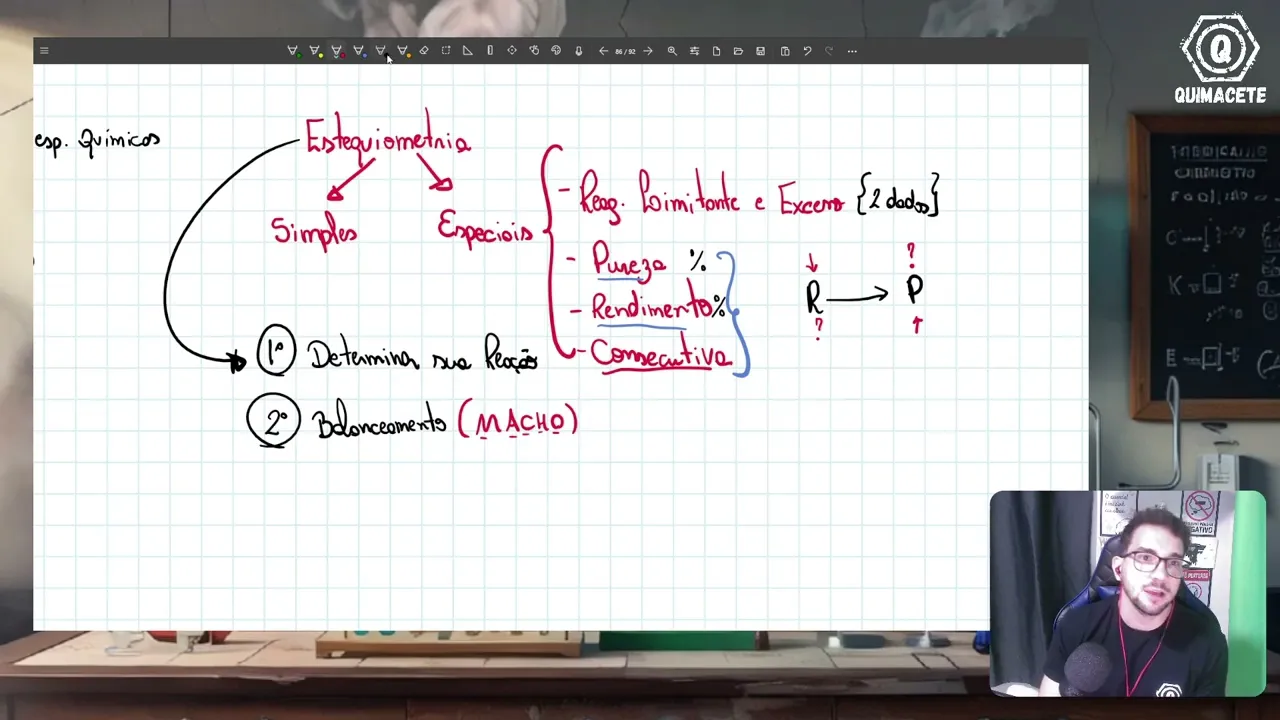 QUIMACETE
86 / 92
esp. Químicos
Estequiometria
Simples
Especiais
- Reag. Limitante e Excesso {2 dados}
- Pureza %
- Rendimento %
- Consecutiva
?
R → P
?
1º Determinar sua Reação
2º Balanceamento (MACHO)